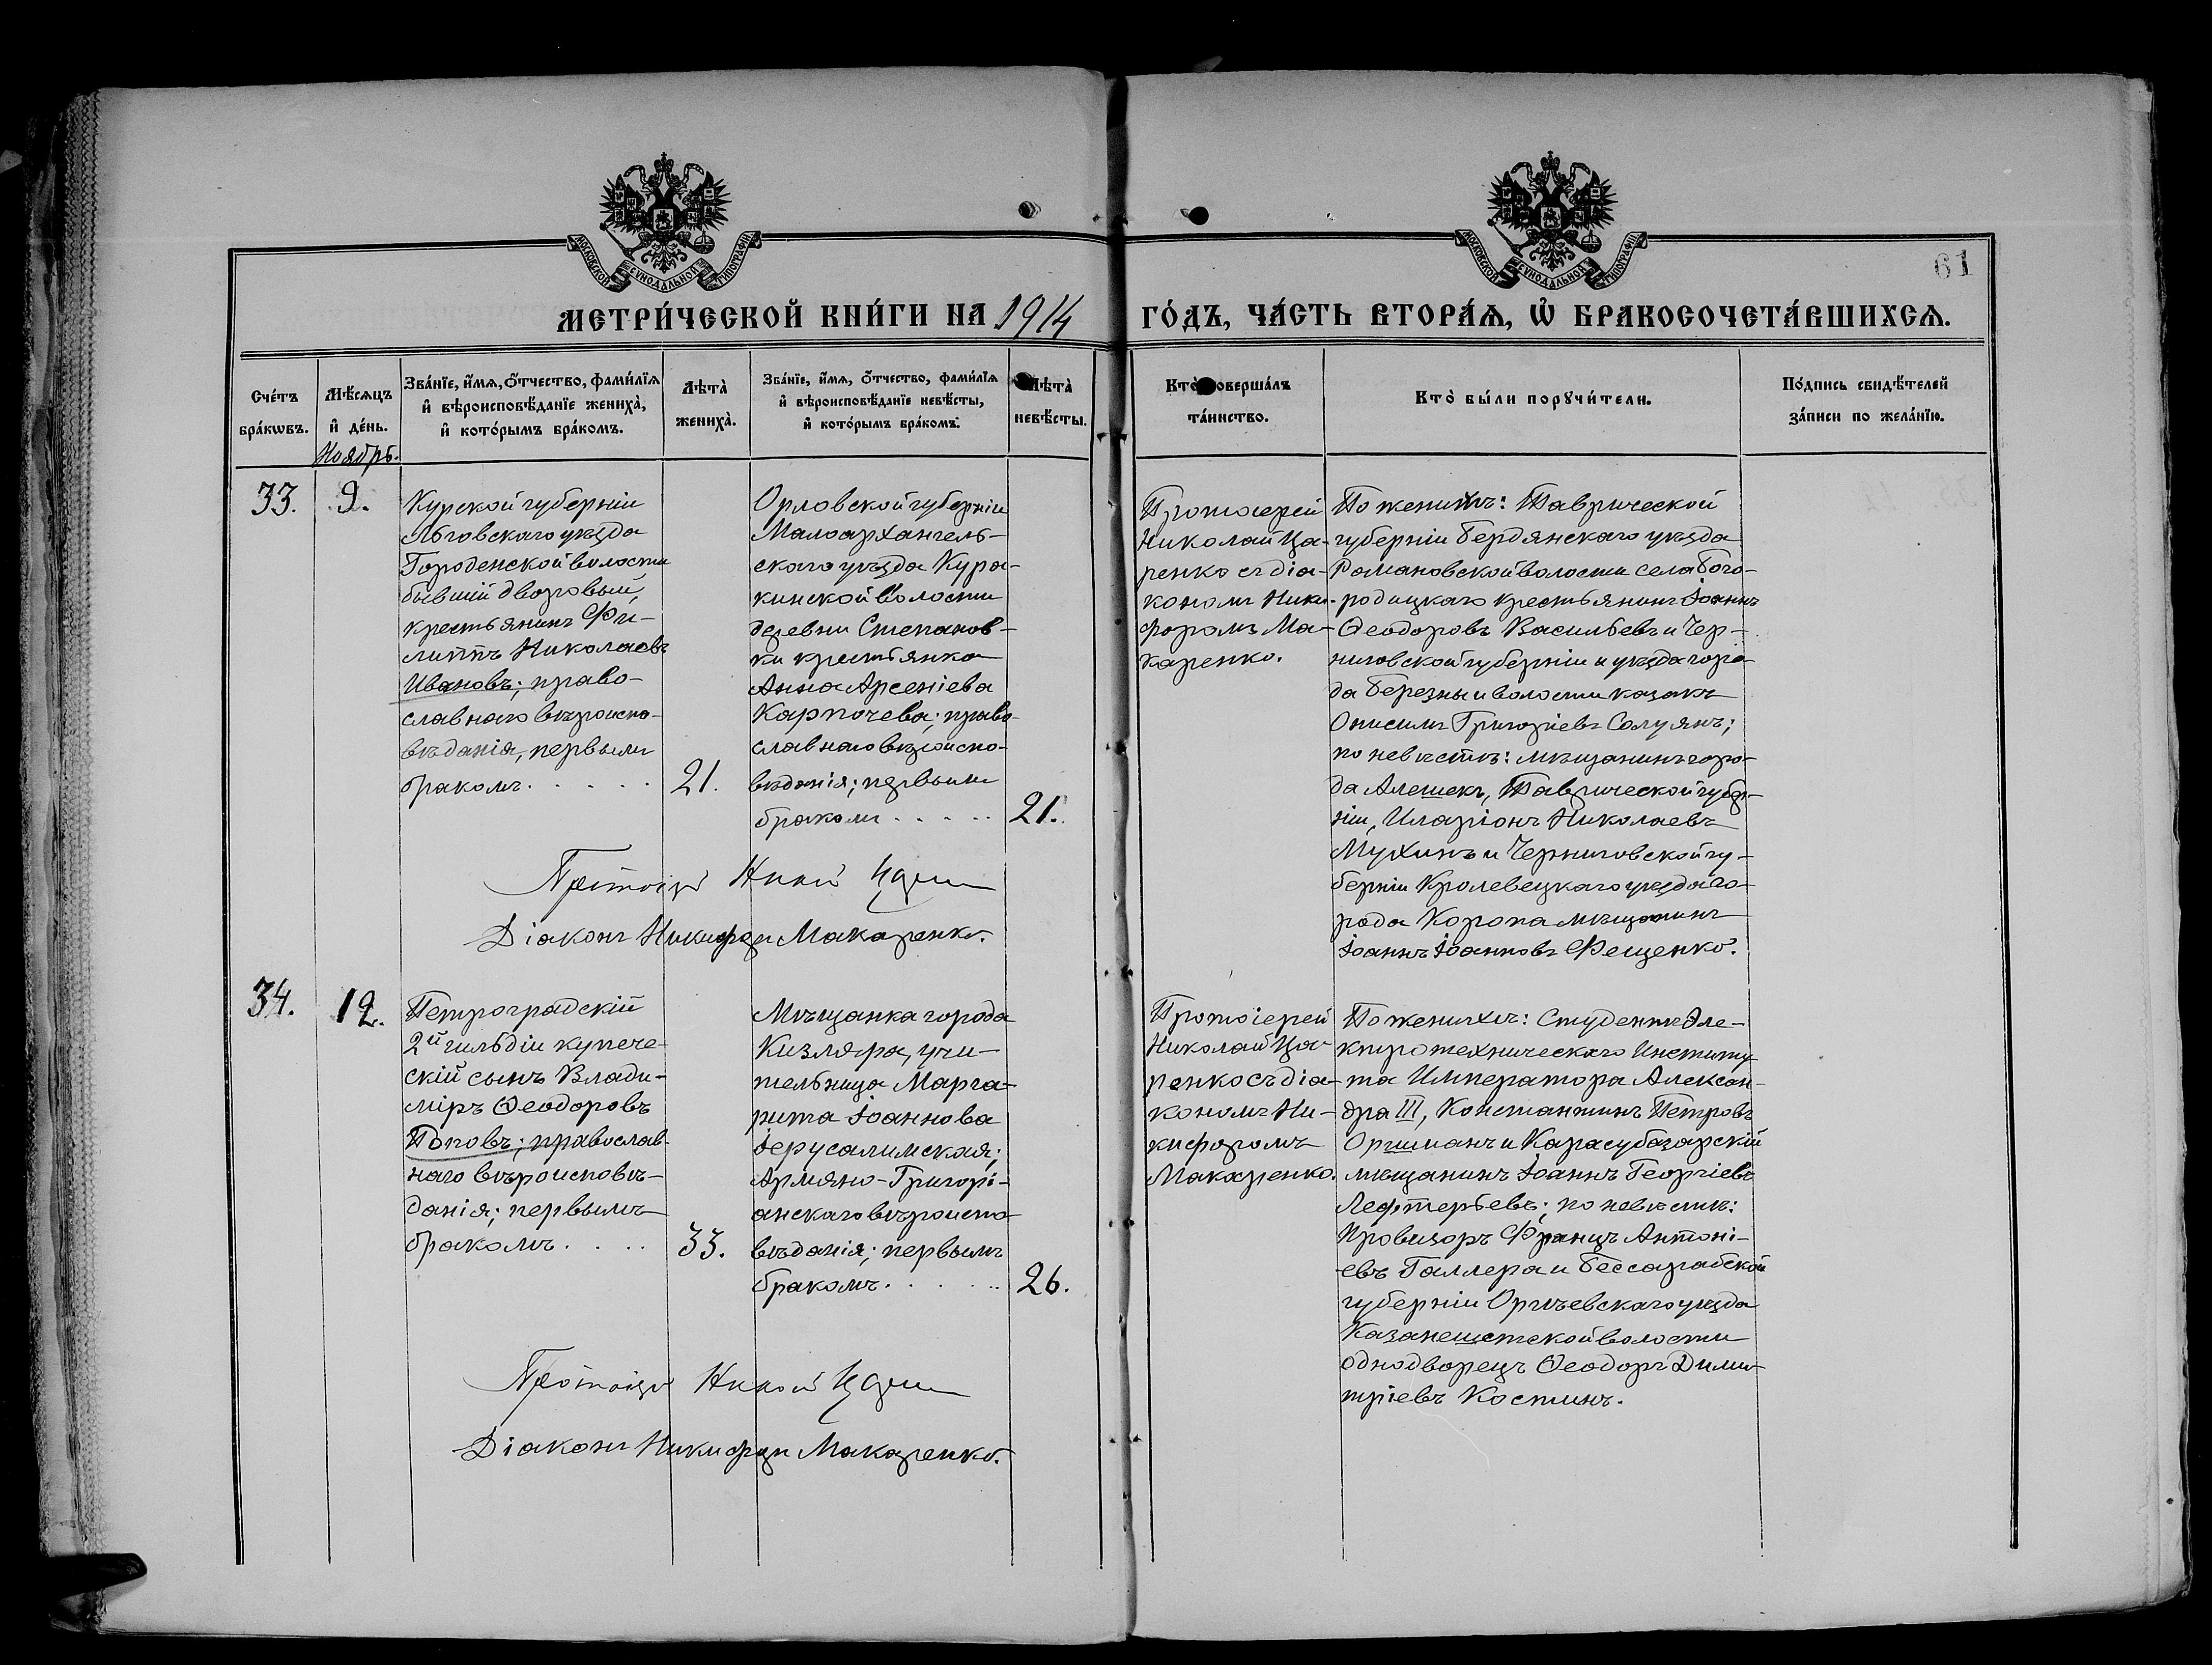 МОСКОВСКОЙ СѴНОДАЛЬНОЙ ТИПОГРАФІИ
МОСКОВСКОЙ СѴНОДАЛЬНОЙ ТИПОГРАФІИ
61
МЕТРИ́ЧЕСКОЙ КНИ́ГИ НА 1914 ГО́ДЪ, ЧА́СТЬ ВТОРА́Ѧ, Ѡ҆ БРАКОСОЧЕТА́ВШИХСѦ.
Сче́тъ бра́кѡвъ.
Мѣ́сѧцъ и҆ де́нь.
Ноябрь.
Зва́нїе, и҆́мѧ, о҆́тчество, фами́лїѧ
и҆ вѣроисповѣ́данїе жениха̀,
и҆ кото́рымъ бра́комъ.
Лѣта̀ жениха̀.
Зва́нїе, и҆́мѧ, о҆́тчество, фами́лїѧ
и҆ вѣроисповѣ́данїе невѣ́сты,
и҆ кото́рымъ бра́комъ.
Лѣта̀ невѣ́сты.
Кто̀ соверша́лъ
та́инство.
Кто̀ бы́ли порꙋчи́тели.
По́дпись свидѣ́телей
за́писи по жела́нїю.
33.
9.
Курской губерніи
Льговскаго уѣзда
Городенской волости
бывшій дворовый,
крестьянинъ Фи-
липпъ Николаевъ
Ивановъ; право-
славнаго вѣроиспо-
вѣданія, первымъ
бракомъ. . . . .
21.
Орловской губерніи
Малоархангель-
скаго уѣзда Кура-
кинской волости
деревни Степанов-
ки крестьянка
Анна Арсеніева
Карпочева; право-
славнаго вѣроиспо-
вѣданія; первымъ
бракомъ . . . . .
21.
Протоіерей
Николай Ца-
ренко съ діа-
кономъ Ники-
форомъ Ма-
каренко.
По женихѣ: Таврической
губерніи Бердянскаго уѣзда
Романовской волости села Бого-
родицкаго крестьянинъ Іоаннъ
Ѳеодоровъ Васильевъ и Чер-
ниговской губерніи и уѣзда горо-
да Березны и волости казакъ
Онисимъ Григоріевъ Солуянъ;
по невѣстѣ: мѣщанинъ горо-
да Алешекъ, Таврической губер-
ніи, Иларіонъ Николаевъ
Мухинъ и Черниговской гу-
берніи Кролевецкаго уѣзда го-
рода Коропа мѣщанинъ
Іоаннъ Іоанновъ Фещенко.
Діаконъ Никифоръ Макаренко.
34.
12.
Петроградскій
2й гильдіи купече-
скій сынъ Влади-
міръ Ѳеодоровъ
Поповъ; православ-
наго вѣроисповѣ-
данія; первымъ
бракомъ. . . .
33.
Мѣщанка города
Кизляра, учи-
тельница Марга-
рита Іоаннова
Іерусалимская;
Армяно-Григорі-
анскаго вѣроиспо-
вѣданія; первымъ
бракомъ. . . . .
26.
Протоіерей
Николай Ца-
ренко съ діа-
кономъ Ни-
кифоромъ
Макаренко.
По женихѣ: Студентъ Эле-
ктротехническаго Институ-
та Императора Алексан-
дра III, Константинъ Петровъ
Оргишанъ и Карасубазарскій
мѣщанинъ Іоаннъ Георгіевъ
Лефтерьевъ; по невѣстѣ:
Провизоръ Францъ Антоні-
евъ Галлера и Бессарабской
губерніи Оргѣевскаго уѣзда
Казанештской волости
однодворецъ Ѳеодоръ Дими-
тріевъ Костинъ.
Діаконъ Никифоръ Макаренко.